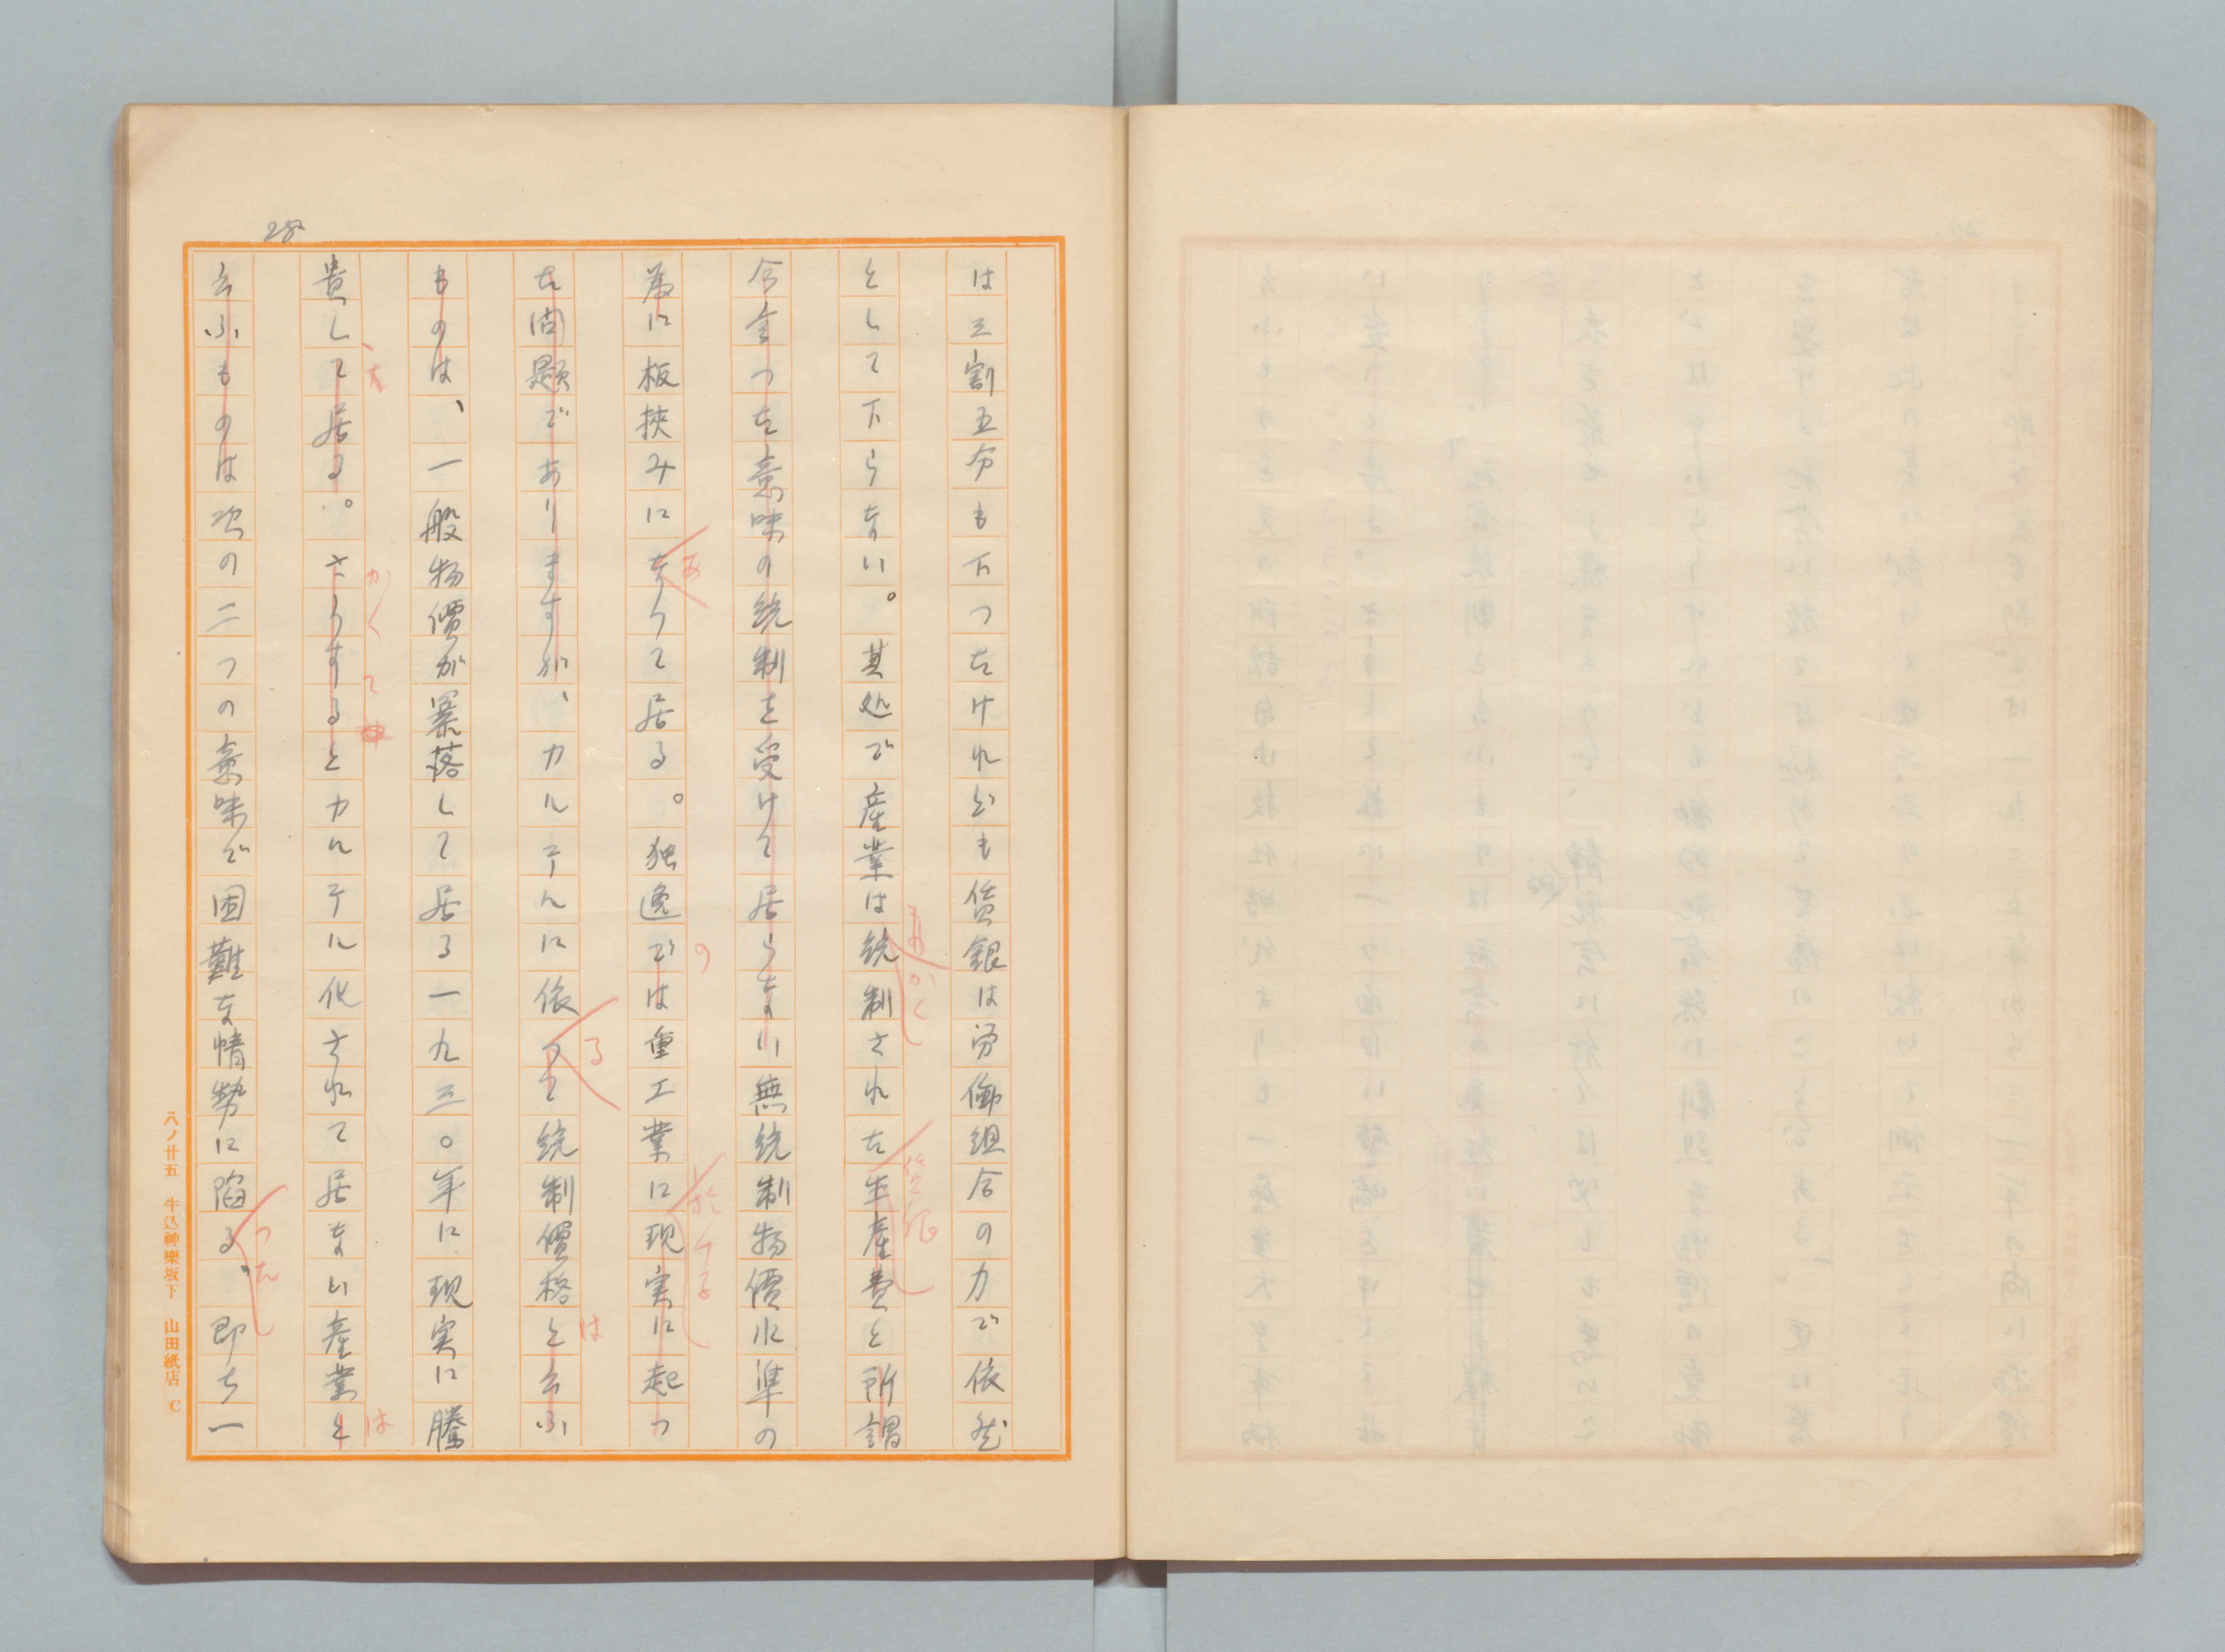 28
は三割五分も下つたけれども賃銀は労働組合の力で依然
として下らない。其処で産業は統制された生産費と所謂
もかく
賃銀
今言つた意味の統制を受けて居らない無統制物價に準の
為に板挾みになりて居る。独逸では重工業に現実に起つ
あ
の
於ける
た問題でありますが、カルテルに依つて統制價格と云ふ
る
は
ものは、一般物價が暴落して居る一九三〇年に現実に騰
貴して居る。さうするとカルテル化されて居ない産業と
、た
かくて
は
云ふものは次の二つの意味で困難な情勢に陥る。即ち一
つた
八ノ廿五 牛込神樂坂下 山田紙店 C